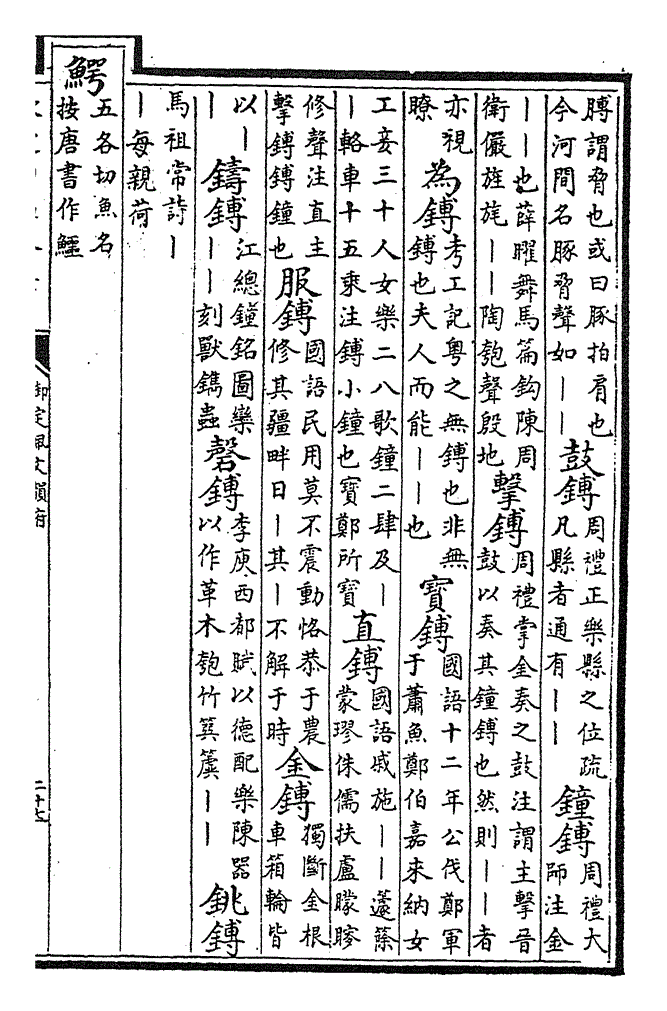 膊謂脅也或曰豚拍肩也今河間名豚脅聲如丨丨鼓鎛周禮正樂縣之位疏凡縣者通有丨丨鐘鎛周禮大師注金
丨丨也薛曜舞馬篇鈎陳周衛儼旌旄丨丨陶匏聲殷地擊鎛周禮掌金奏之鼓注謂主擊晉鼓以奏其鐘鎛也然則丨丨者
亦視瞭為鎛考工記粤之無鎛也非無鎛也夫人而能丨丨也寶鎛國語十二年公伐鄭軍于蕭魚鄭伯嘉來納女
工妾三十人女樂二八歌鐘二肆及丨丨輅車十五乘注鎛小鐘也寶鄭所寶直鎛國語戚施丨丨蘧蒢蒙璆侏儒扶盧矇瞍
修聲注直主擊鎛鎛鐘也服鎛國語民用莫不震動恪恭于農修其疆畔日丨其丨不解于時金鎛獨斷金根車箱輪皆
以丨丨鑄鎛江總鐘銘圖樂丨丨刻獸鐫蟲磬鎛李庾西都賦以德配樂陳器以作革木匏竹簨簴丨丨銚鎛
馬祖常詩丨丨每親荷
鰐五各切魚名按唐書作鱷
御定佩文韻府
二十七